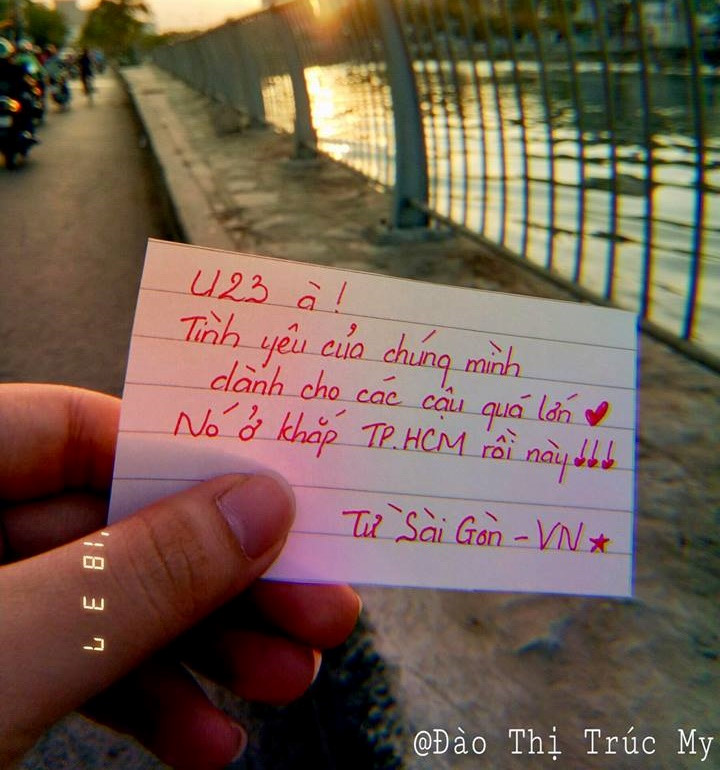 U23 à!
Tình yêu của chúng mình
dành cho các cậu quá lớn ♥
Nó ở khắp TP.HCM rồi này↓↓↓
Từ Sài Gòn - VN ★
'18 3 7
@Đào Thị Trúc My